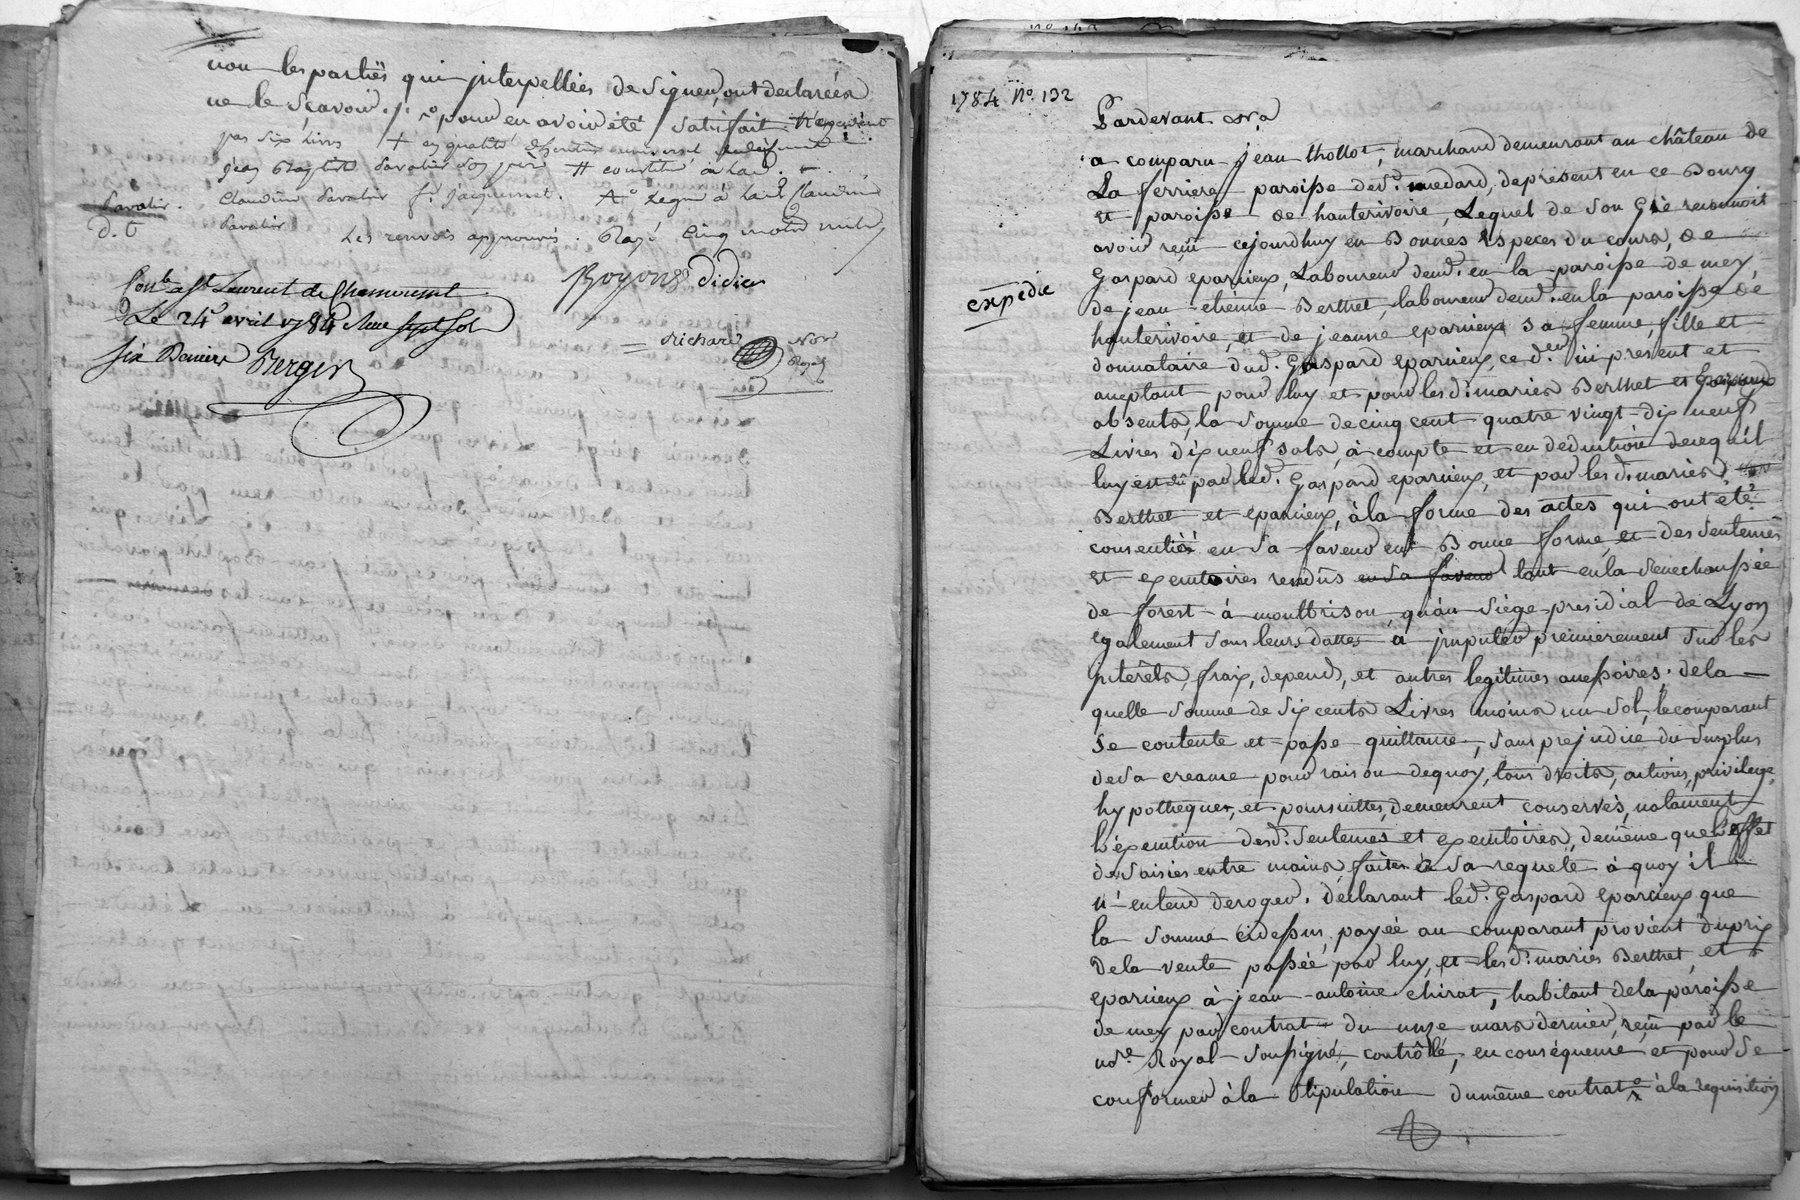 non les partiës qui interpelleés de signer, ont declareés
ne le sçavoir. /. pour en avoir été satisfait
par six livres + en qualité d'heritier universel
jean Baptiste Savatier son pere # constitué
Savatier. Claudine Savatier f. jacquemet. legué à lad. Claudine
d. t Savatier Les renvois approuvés. Rayé cinq mots nuls
Conlé a St Laurent de Chamousset
Le 24 avril 1784 Reçu sept sols
six Deniers Berger
Royons Didier
Richard
Nore
Royal
1784 No. 132
Pardevant
a comparu jean thollot, marchand demeurant au château de
La ferriere paroisse de St. medard, de present en ce Bourg
et paroisse de hauterivoire, Lequel de son Gré reconnoit
avoir reçu cejourdhuy en Bonnes Especes du cours, de
Gaspard eparvieux, Laboureur demt. en la paroisse de mey,
expedié
de jean etienne Berthet, laboureur demt. en la paroisse de
hauterivoire, et de jeanne eparvieux sa femme, fille et
donnataire dud. Gaspard eparvieux, ce der. ici present et
acceptant pour luy et pour lesd. mariés Berthet et
absents, la somme de cinq cent quatre vingt-dix neuf
Livres dix neuf sols, à compte et en deduction de ce qu'il
luy est dû par led. Gaspard eparvieux, et par les d. mariés
Berthet et eparvieux, à la forme des actes qui ont été
consentiés en sa faveur en Bonne forme, et des sentences
et executoires rendûs en sa faveur tant en la Senechaussée
de forest à montbrison, qu'au Siège presidial de Lyon
egalement sous leurs dattes à imputer premierement sur les
interêts, fraix, depend, et autres legitimes accessoires. de la
quelle somme de six cents Livres moins un sol, le comparant
se contente et passe quittance, sans prejudice du surplus
de sa creance pour raison dequoy, tous droits, actions, privilege,
hypotheques, et poursuittes, demeurent conservés, notament
l'éxecution desd. Sentences et executoires, demême que l'effet
de saisies entre mains, faites à sa requete à quoy il
n'entend deroger. déclarant led. Gaspard eparvieux que
la somme cidessus payée au comparant provient du prix
de la vente passée par luy, et les d. mariés Berthet et
eparvieux à jean-antoine chirat, habitant de la paroisse
de mey par contrat du onze mars dernier, reçu par le
nore. Royal soussigné, contrôlé, en conséquence et pour se
conformer à la stipulation du même contrat à la requisition